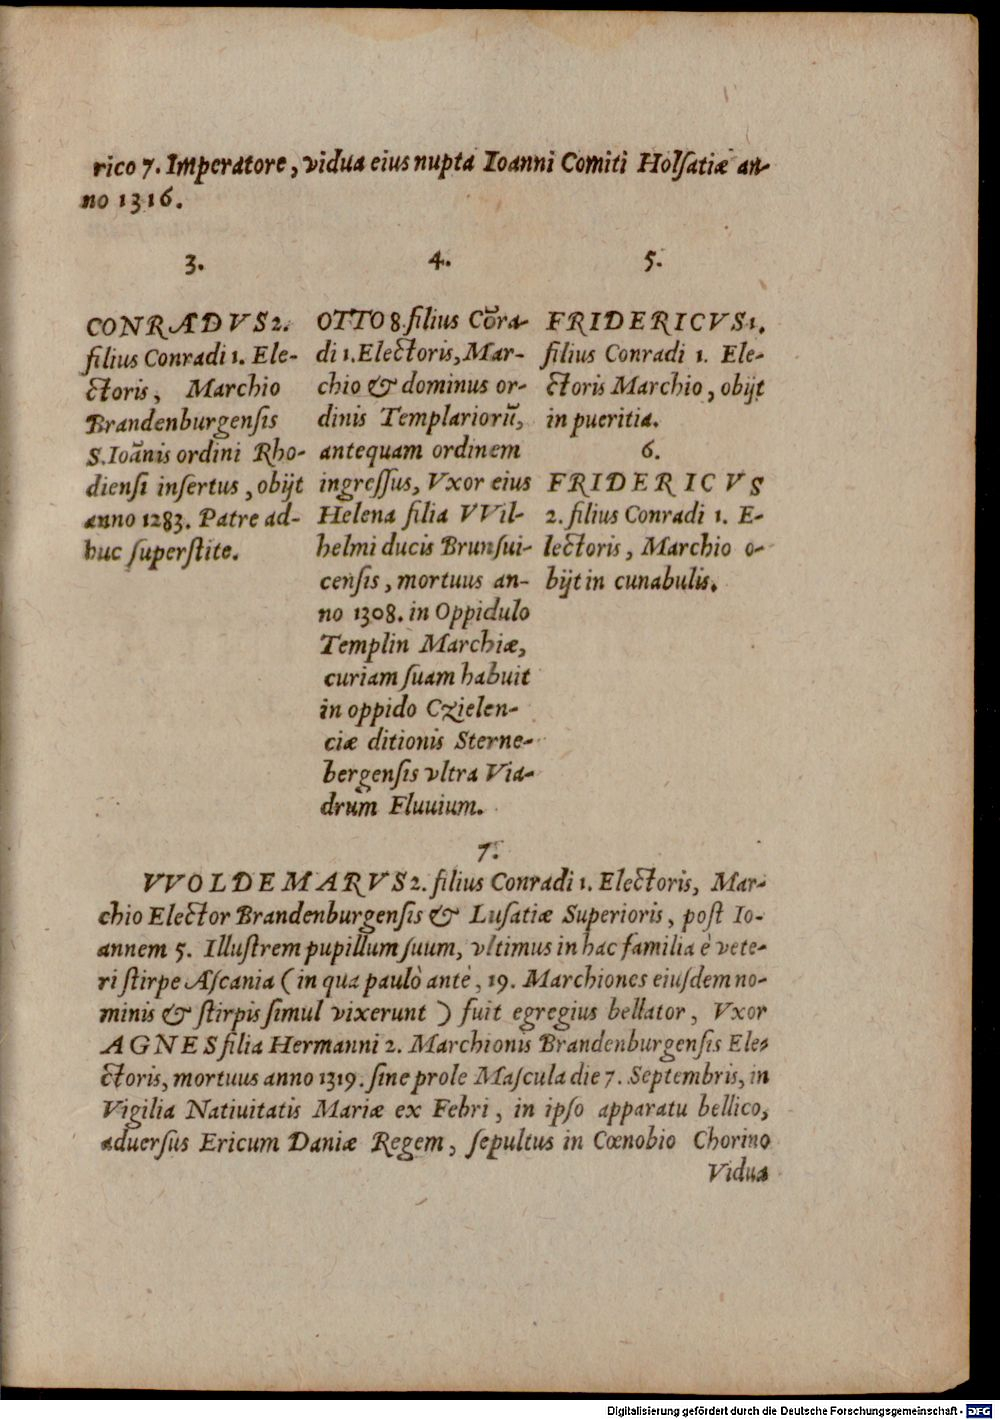 rico 7. Imperatore, vidua eius nupta Ioanni Comiti Holſatiæ an-
no 1316.
3.
CONRADVS 2.
filius Conradi 1. Ele-
ctoris, Marchio
Brandenburgenſis
S. Ioãnis ordini Rho-
dienſi inſertus, obijt
anno 1283. Patre ad-
huc ſuperſtite.
4.
OTTO 8. filius Cõra-
di 1. Electoris, Mar-
chio & dominus or-
dinis Templariorũ,
antequam ordinem
ingreſſus, Vxor eius
Helena filia VVil-
helmi ducis Brunſui-
cenſis, mortuus an-
no 1308. in Oppidulo
Templin Marchiæ,
curiam ſuam habuit
in oppido Czielen-
ciæ ditionis Sterne-
bergenſis vltra Via-
drum Fluuium.
5.
FRIDERICVS 1.
filius Conradi 1. Ele-
ctoris Marchio, obijt
in pueritia.
6.
FRIDERICVS
2. filius Conradi 1. E-
lectoris, Marchio o-
bijt in cunabulis.
7.
VVOLDEMARVS 2. filius Conradi 1. Electoris, Mar-
chio Elector Brandenburgenſis & Luſatiæ Superioris, poſt Io-
annem 5. Illuſtrem pupillum ſuum, vltimus in hac familia è vete-
ri ſtirpe Aſcania (in qua paulò antè, 19. Marchiones eiuſdem no-
minis & ſtirpis ſimul vixerunt) fuit egregius bellator, Vxor
AGNES filia Hermanni 2. Marchionis Brandenburgenſis Ele-
ctoris, mortuus anno 1319. ſine prole Maſcula die 7. Septembris, in
Vigilia Natiuitatis Mariæ ex Febri, in ipſo apparatu bellico,
aduerſus Ericum Daniæ Regem, ſepultus in Cœnobio Chorino
Vidua
Digitalisierung gefördert durch die Deutsche Forschungsgemeinschaft - DFG